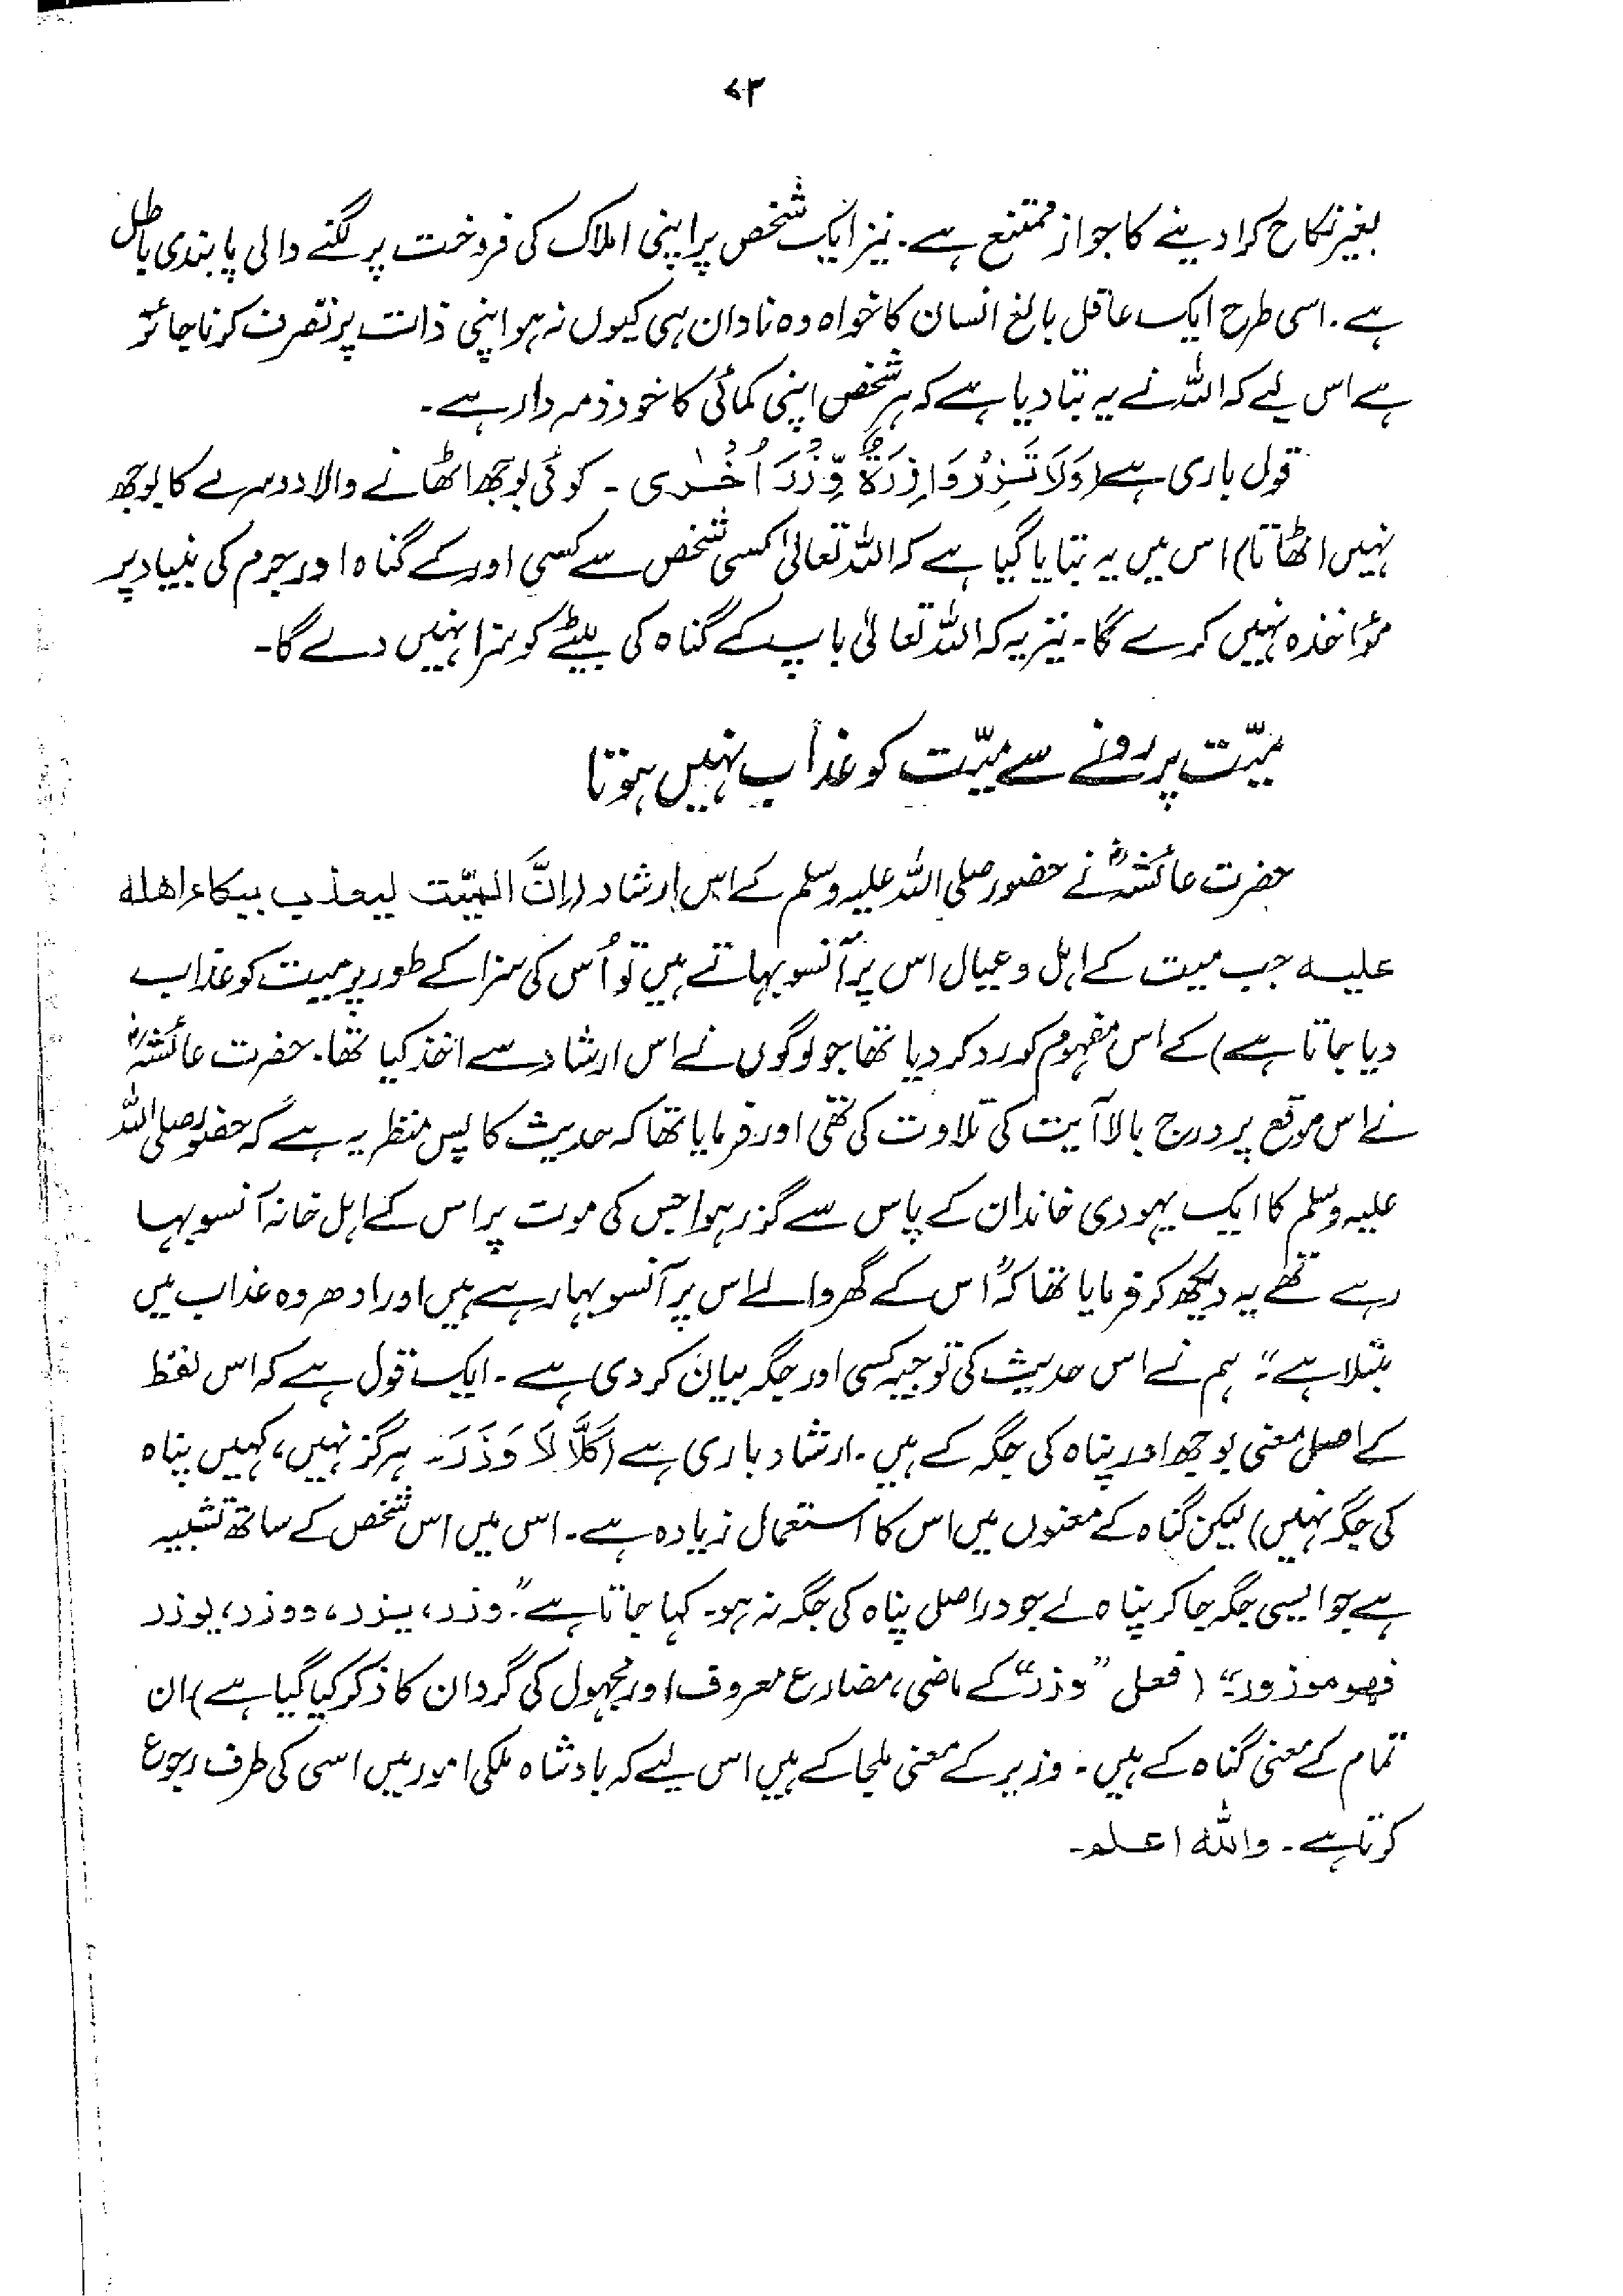 ۷۳
بغیر نکاح کرا دینے کا جواز ممتنع ہے۔ نیز ایک شخص پر اپنی املاک کی فروخت پر لگنے والی پابندی باطل
ہے۔ اسی طرح ایک عاقل بالغ انسان کا خواہ وہ نادان ہی کیوں نہ ہو اپنی ذات پر تصرف کرنا جائز
ہے اس لیے کہ اللہ نے یہ بتا دیا ہے کہ ہر شخص اپنی کمائی کا خود ذمہ دار ہے۔
قول باری ہے (وَلَا تَزِرُ وَازِرَةٌ وِّزْرَ اُخْرٰی ۔ کوئی بوجھ اٹھانے والا دوسرے کا بوجھ
نہیں اٹھاتا) اس میں یہ بتایا گیا ہے کہ اللہ تعالیٰ کسی شخص سے کسی اور کے گناہ اور جرم کی بنیاد پر
مؤاخذہ نہیں کرے گا۔ نیز یہ کہ اللہ تعالیٰ باپ کے گناہ کی بیٹے کو سزا نہیں دے گا۔
میّت پر رونے سے میّت کو عذاب نہیں ہوتا
حضرت عائشہؓ نے حضور صلی اللہ علیہ وسلم کے اس ارشاد (اِنَّ المیّت لیعذب ببکاء اھلہ
علیہ جب میت کے اہل و عیال اس پر آنسو بہاتے ہیں تو اُس کی سزا کے طور پر میت کو عذاب
دیا جاتا ہے) کے اس مفہوم کو رد کر دیا تھا جو لوگوں نے اس ارشاد سے اخذ کیا تھا۔ حضرت عائشہؓ
نے اس موقع پر درج بالا آیت کی تلاوت کی تھی اور فرمایا تھا کہ حدیث کا پس منظر یہ ہے کہ حضور صلی اللہ
علیہ وسلم کا ایک یہودی خاندان کے پاس سے گزر ہوا جس کی موت پر اس کے اہل خانہ آنسو بہا
رہے تھے یہ دیکھ کر فرمایا تھا کہ "اس کے گھر والے اس پر آنسو بہا رہے ہیں اور ادھر وہ عذاب میں
مبتلا ہے"۔ ہم نے اس حدیث کی توجیہ کسی اور جگہ بیان کر دی ہے۔ ایک قول ہے کہ اس لفظ
کے اصل معنی بوجھ اور پناہ کی جگہ کے ہیں۔ ارشاد باری ہے (کَلَّا لَا وَزَرَ۔ ہرگز نہیں، کہیں پناہ
کی جگہ نہیں) لیکن گناہ کے معنوں میں اس کا استعمال زیادہ ہے۔ اس میں اس شخص کے ساتھ تشبیہ
ہے جو ایسی جگہ جا کر پناہ لے جو دراصل پناہ کی جگہ نہ ہو۔ کہا جاتا ہے "وزر، یزر، ووزر، یوزر
فھو موزور"۔ (فعل "وزر" کے ماضی، مضارع معروف اور مجہول کی گردان کا ذکر کیا گیا ہے) ان
تمام کے معنی گناہ کے ہیں۔ وزیر کے معنی ملجا کے ہیں اس لیے کہ بادشاہ ملکی امور میں اسی کی طرف رجوع
کرتا ہے۔ واللہ اعلم۔